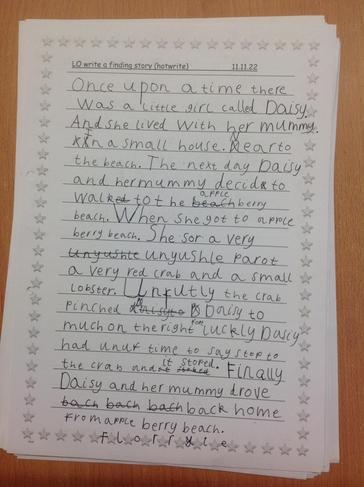 LO write a finding story (hotwrite) 11.11.22
Once upon a time there
was a little girl called Daisy.
And she lived with her mummy.
In a small house. Near to
the beach. The next day Daisy
and her mummy decide to
walked to the apple beach berry
beach. When she got to apple
berry beach. She sor a very
unyushte unyushle parot
a very red crab and a small
lobster. Unfutly the crab
pinched Daisy to
much on the right luckly Daisy
had unuf time to say stop to
the crab and it stored. Finally
Daisy and her mummy drove
bach bach bach back home
from apple berry beach.